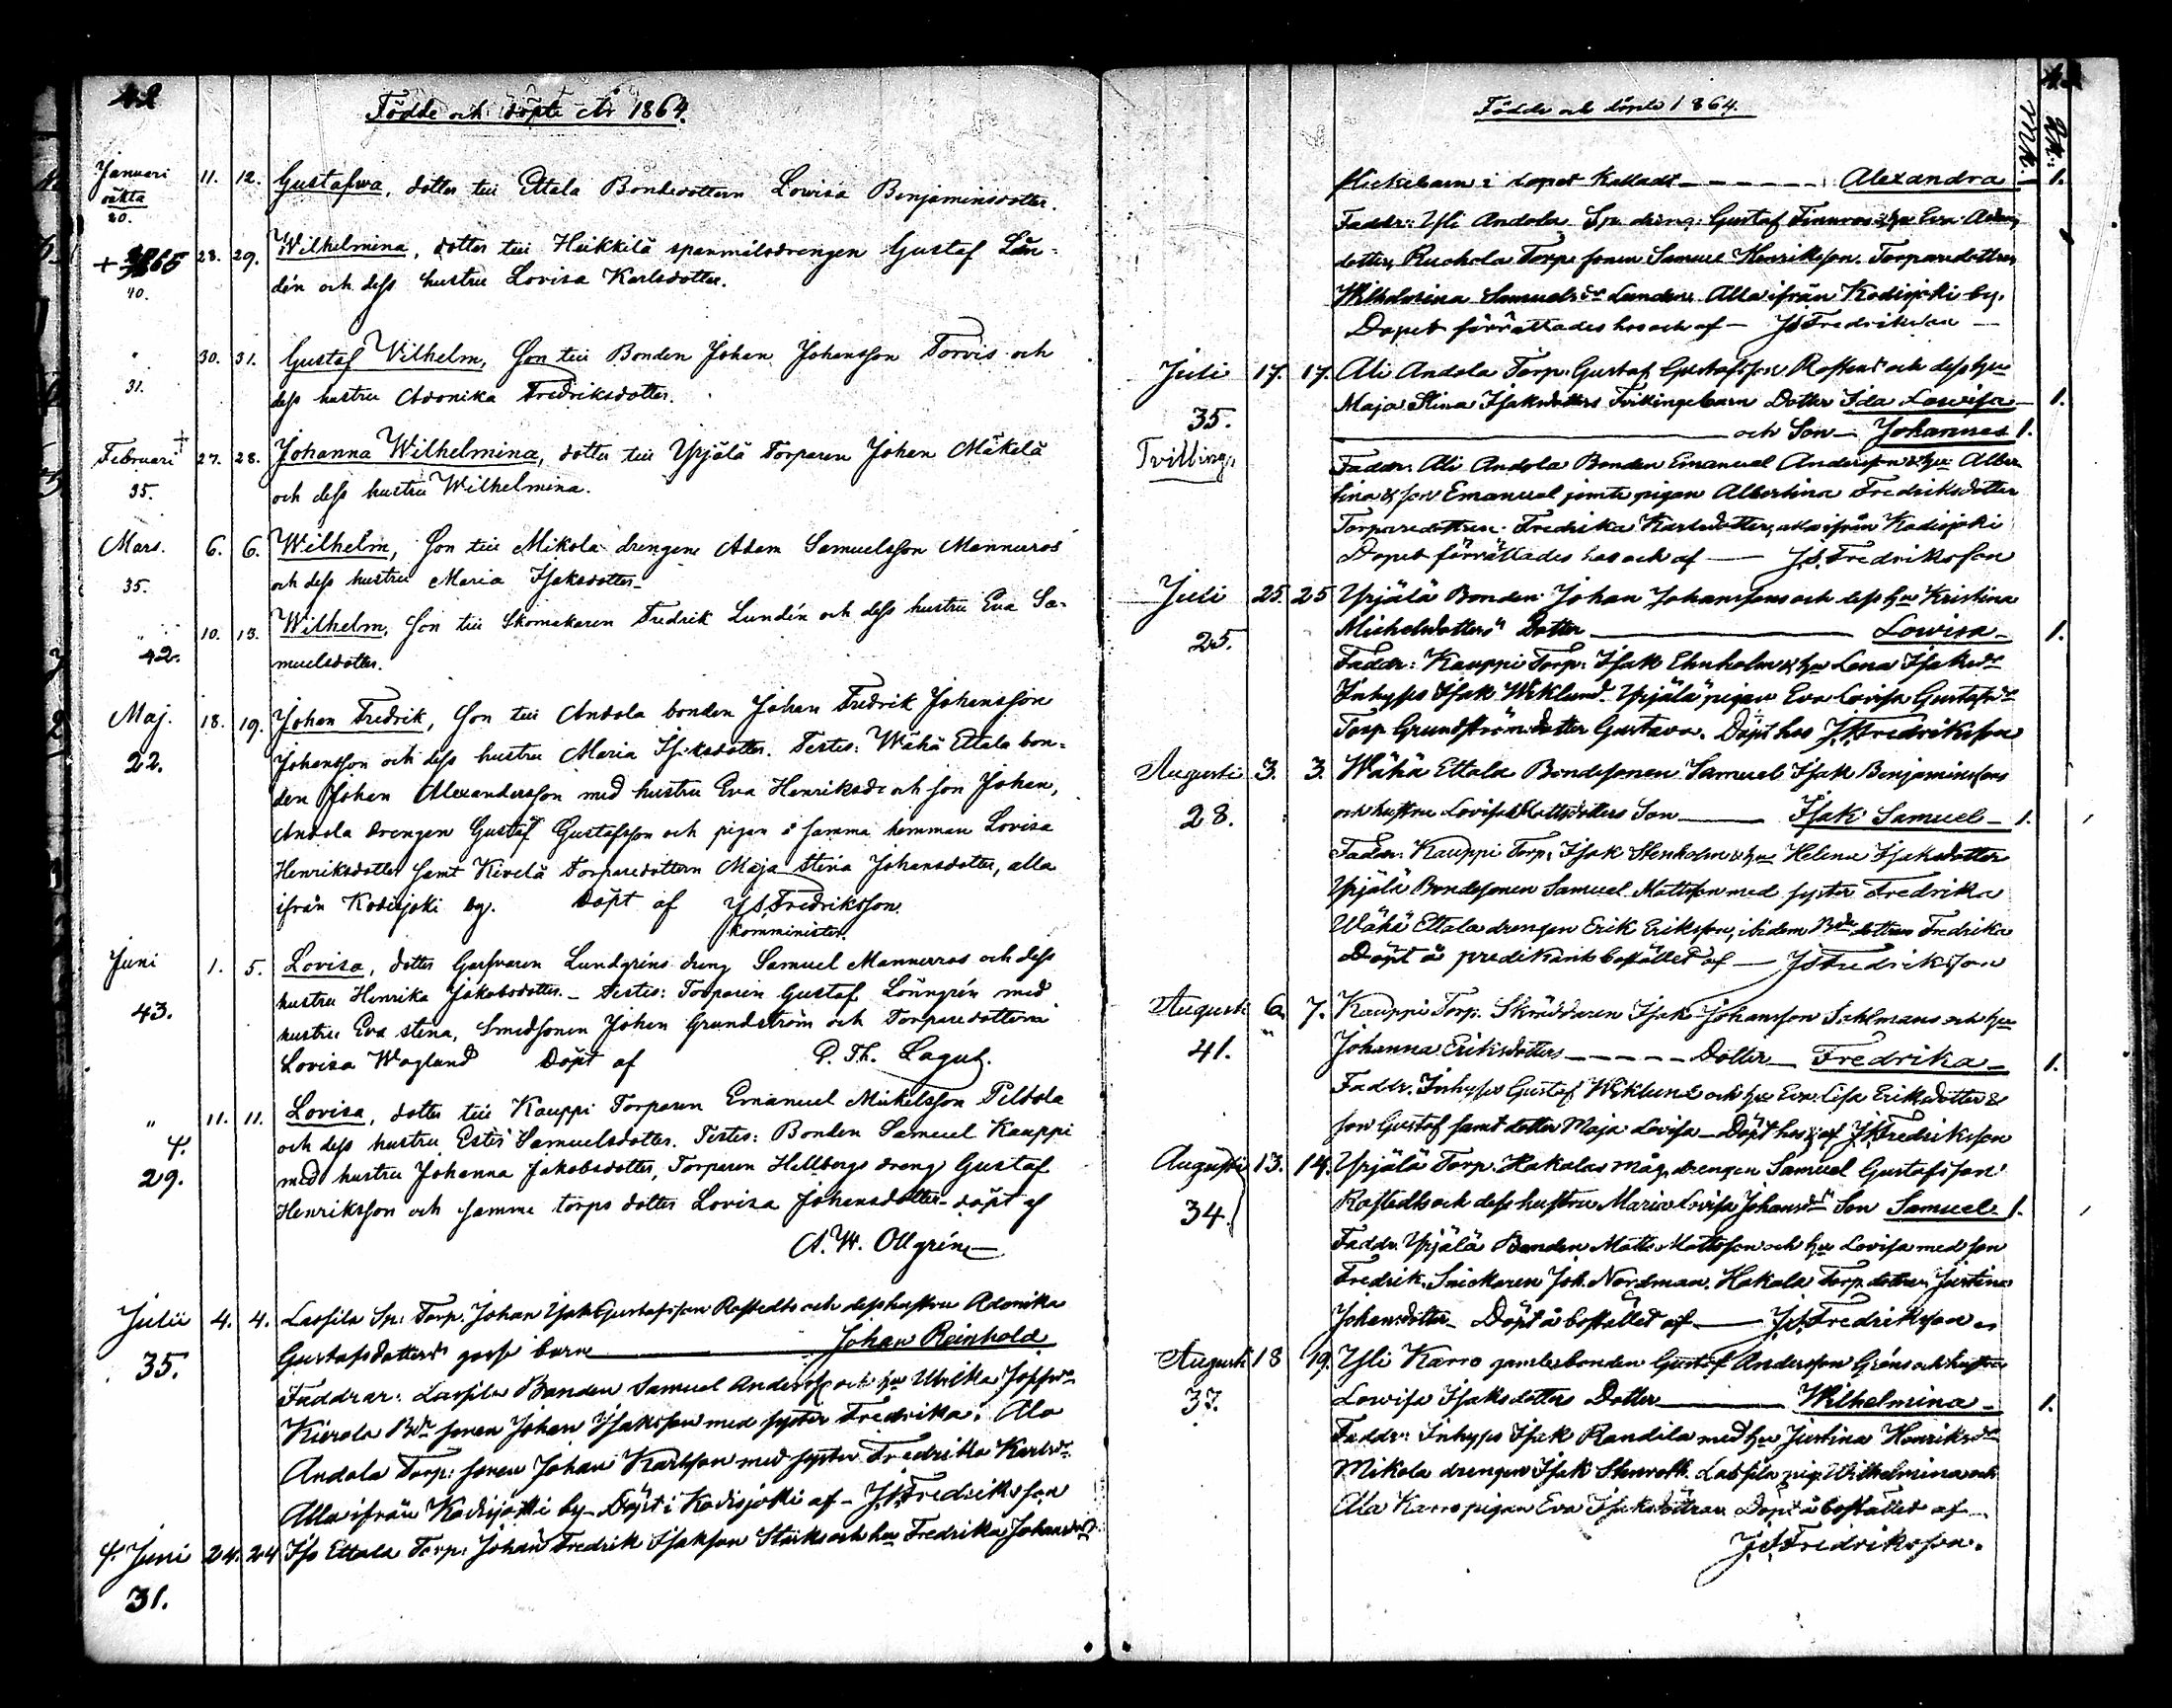 42
Födde och döpte År 1864.
Januari 11. 12. Gustafwa, dotter till Ettala Bondedottern Lovisa Benjaminsdotter.
oäkta
20.
+ 1865 28. 29. Wilhelmina, dotter till Heikkilä spanmålsdrengen Gustaf Lun-
40. dén och dess hustru Lovisa Karlsdotter.
" 30. 31. Gustaf Vilhelm, Son till Bonden Johan Johansson Torvis och
31. dess hustru Adonika Fredriksdotter.
Februari + 27. 28. Johanna Wilhelmina, dotter till Yrjälä Torparen Johan Mäkelä
35. och dess hustru Wilhelmina.
Mars. 6. 6. Wilhelm, Son till Mikola drengen Adam Samuelsson Mannerros
35. och dess hustru Maria Isaksdotter.
" 10. 13. Wilhelm, Son till Skomakaren Fredrik Lundén och dess hustru Eva Sa-
42. muelsdotter.
Maj. 18. 19. Johan Fredrik, Son till Andola bonden Johan Fredrik Johansson
22. Johansson och dess hustru Maria Isaksdotter. Testes: Wähä Ettala bon-
den Johan Alexandersson med hustru Eva Henriksdr och son Johan,
Andola drengen Gustaf Gustafsson och pigan i samma hemman Lovisa
Henriksdotter samt Kivelä torparedottern Maja Stina Johansdotter, alla
ifrån Kodisjoki by. Döpt af J.S. Fredriksson.
komminister.
Juni 1. 5. Lovisa, dotter Garfvaren Lundgrins dreng Samuel Mannerros och dess
hustru Henrika Jakobsdotter. - Testes: Torparen Gustaf Lönngrén med
43. hustru Eva Stina, Smedsonen Johan Grundström och Torparedottern
Lovisa Waglund Döpt af P. Th. Lagus.
" 11. 11. Lovisa, dotter till Kauppi Torparen Emanuel Mickelsson Peltola
†. och dess hustru Ester Samuelsdotter. Testes: Bonden Samuel Kauppi
29. med hustru Johanna Jakobsdotter, Torparen Hellbergs dreng Gustaf
Henriksson och samma torps dotter Lovisa Johansdotter - döpt af
A. W. Ollgrén
Julii 4. 4. Lassila Sp: Torp. Johan Isak Gustafsson Rostedts och dess hustru Adonika
35. Gustafsdotters gosse barn Johan Reinhold
Faddrar: Lassila Bonden Samuel Andersson och hu Ulrika
Kierola Bde sonen Johan Isaksson med syster Fredrika. Ala
Andola Torp: sonen Johan Karlsson med syster Fredrika Karlsdr
Alla ifrån Kodisjoki by. Döpt i Kodisjoki af - J.S. Fredriksson
†. Juni 24. 24 Iso Ettala Torp: Johan Fredrik Isaksson Starks och hu Fredrika Johansdrs
31.
Födde och döpte 1864.
Mk. Qk.
flickebarn i dopet kallads Alexandra 1.
Faddr: Yli Andola Sp. dräng: Gustaf Finnros & hu Eva
dotter, Ruohola Torp. sonen Samuel Henriksson. Torparedottren
Wilhelmina Samuelsdr Lunden. Alla ifrån Kodisjoki by.
Dopet förrättades hos och af - J.S. Fredriksson
Juli 17. 17. Ali Andola Torp. Gustaf Gustafsson Rostens och dess hu
Maja Stina Isaksdotters Tvillingebarn Dotter Ida Lowisa 1.
35. och Son - Johannes 1.
Tvillingar Faddr: Ali Andola Bonden Emanuel Andersson & hu Alber
tina & son Emanuel jemte pigan Albertina Fredriksdotter
Torparedottren Fredrika Karlsdotter, alla ifrån Kodisjoki
Dopet förrättades hos och af - J.S. Fredriksson
Juli 25. 25 Yrjälä Bonden Johan Johanssons och dess hu Kristina
25. Michelsdotters Dotter Lowisa 1.
Faddr: Kauppi Torp: Isak Ehnholm & hu Lena Isaksdr
Inhyses Isak Wiklund. Yrjälä pigan Eva Lovisa Gustafsdr
Torp Grundströms dotter Gustava. Döpt hos J.S. Fredriksson
Augusti 3. 3. Wähä Ettala Bondesonen Samuel Isak Benjaminssons
28. och hustru Lovisa Mattsdotters Son Isak Samuel 1.
Faddr: Kauppi Torp: Isak Stenholm & hu Helena Isaksdotter
Yrjälä Bondesonen Samuel Mattsson med syster Fredrika
Wähä Ettala drengen Erik Eriksson, ibidem Bde dottren Fredrika
Döpt å predikants bostället af - J.S. Fredriksson
Augusti 6. 7. Kauppi Torp. Skräddaren Isak Johansson Sahlmans och hu
41. Johanna Eriksdotters Dotter Fredrika 1.
Faddr. Inhyses Gustaf Wiklund och hu Eva Lisa Eriksdotter &
son Gustaf samt dotter Maja Lovisa - Döpt hos & af J.S. Fredriksson
Augusti 13. 14. Yrjälä Torp. Hakalas måg, drengen Samuel Gustafsson
34. Rostedts och dess hustru Maria Lovisa Johansdrs Son Samuel 1.
Faddr. Yrjälä Bonden Matts Mattsson och hu Lovisa med son
Fredrik. Snickaren Joh. Nordman. Hakala Torp. dottren Justina
Johansdotter Döpt å bostället af - J.S. Fredriksson
Augusti 18 19. Yli Karro gamlebonden Gustaf Andersson Gréns och hustru
37. Lowisa Isaksdotters Dotter Wilhelmina 1.
Faddr: Inhyses Isak Randila med hu Justina Henriksdr
Mikola drengen Isak Stenroth. Lassila pig. Wilhelmina och
Ala Karro pigan Eva Isaksdotter Döpt å bostället af
J.S. Fredriksson.